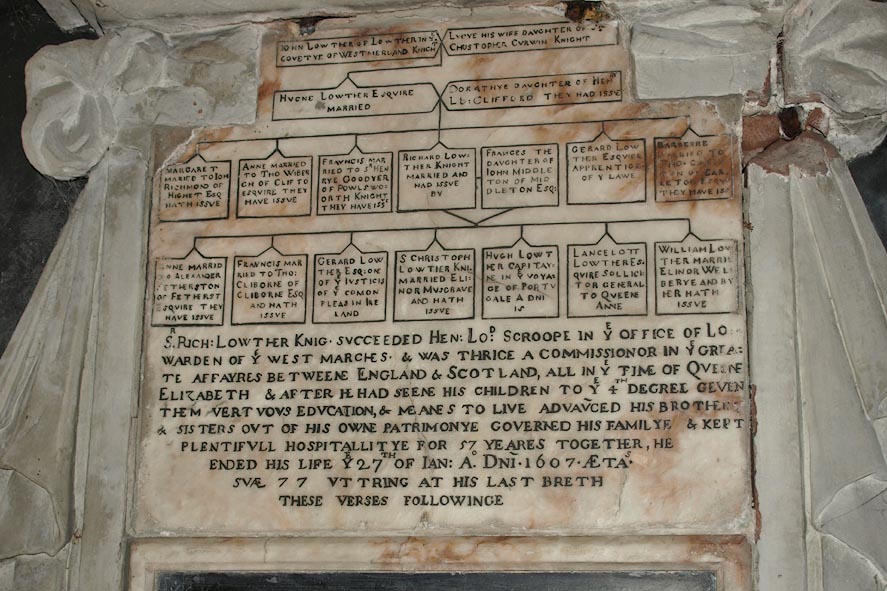 IOHN LOWTHER OF LOWTHER IN Yᴱ
COVETYE OF WESTMERLAND KNIGHᵀ
LVCYE HIS WIFE DAUGHTER OF Sᴿ
CHOSTOPHER CVRWIN KNIGHT
HVGHE LOWTHER ESQVIRE
MARRIED
DORATHYE DAUGHTER OF HENᴿ
LD: CLIFFORD THEY HAD ISSVE
MARGARET
MARIED TO IOHN
RICHMOND OF
HIGHET ESQ
HATH ISSVE
ANNE MARRIED
TO THO WIBER
OF CLIFTO
ESQVIRE THEY
HAVE ISSVE
FRAVNCIS MAR
RIED TO Sᴿ HEN
RYE GOODYER
OF POWLSWO
ORTH KNIGHT
THEY HAVE ISSᵛᵉ
RICHARD LOW:
THER KNIGHT
MARRIED AND
HAD ISSVE
BY
FRANCES THE
DAUGHTER OF
IOHN MIDDLE
TON OF MID
DLETON ESQ:
GERARD LOW
THER ESQVIER
APPRENTICE
OF Y LAWE
BARBERRE
MARRIED TO
THO:
TON OF CAR
LETON ESQVI
THEY HAVE ISS
ANNE MARRIED
TO ALEXANDER
FETHERSTON
OF FETHERST
ESQVIRE THEY
HAVE ISSVE
FRAVNCIS MAR
RIED TO THO:
CLIBORNE OF
CLIBORNE ESQ
AND HATH
ISSVE
GERARD LOW
THER ESQ: ONE
OF Yᴱ IVSTICIS
OF Yᴱ COMON
PLEAS IN IRE
LAND
S CHRISTOPH
LOWTHER KNI:
MARRIED ELI
NOR MUSGRAVE
AND HATH
ISSVE
HUGH LOWT
HER CAPITAY
NE IN Yᴱ VOYA
GE OF PORTV
GALE A DNI
IS
LANCELOTT
LOWTHER ES
QVIRE SOLLICIT
TOR GENERAL
TO QVEENE
ANNE
WILLIAM LOW
THER MARRIE
ELINOR WEL
BERYE AND BY
HER HATH
ISSVE
Sᴿ RICH: LOWTHER KNIG. SVCCEEDED HEN: LOᴰ SCROOPE IN Yᴱ OFFICE OF LO:
WARDEN OF Yᴱ WEST MARCHES. & WAS THRICE A COMMISSIONOR IN Yᴱ GREA
TE AFFAYRES BETWEENE ENGLAND & SCOTLAND, ALL IN Yᴱ TIME OF QVEENE
ELIZABETH & AFTER HE HAD SEENE HIS CHILDREN TO Yᴱ 4ᵀᴴ DEGREE GEVEN
THEM VERTVOVS EDVCATION, & MEANES TO LIVE ADVAN̄CED HIS BROTHERS
& SISTERS OVT OF HIS OWNE PATRIMONYE GOVERNED HIS FAMILYE & KEPT
PLENTIFVLL HOSPITALLITYE FOR 57 YEARES TOGETHER, HE
ENDED HIS LIFE Yᴱ 27ᵀᴴ OF IAN: Aᴼ DNĪ · 1607 · ÆTAˢ
SVÆ 77 VTTRING AT HIS LAST BRETH
THESE VERSES FOLLOWINGE